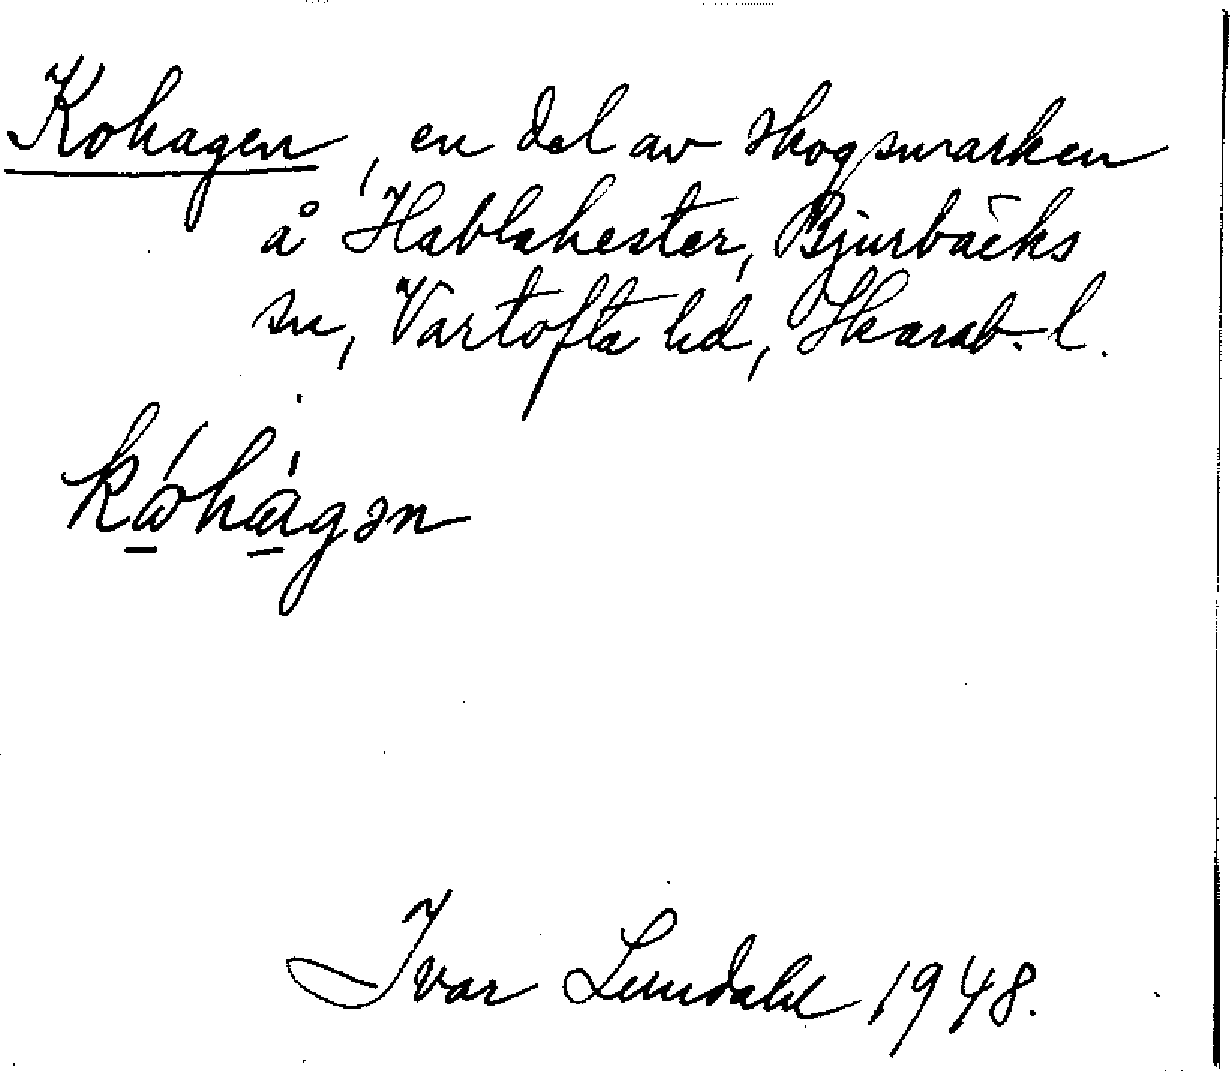 Kohagen, en del av skogsmarken
å Hablahester, Bjurbäcks
sn, Vartofta hd, Skarab. l.
Ivar Lundahl 1948.